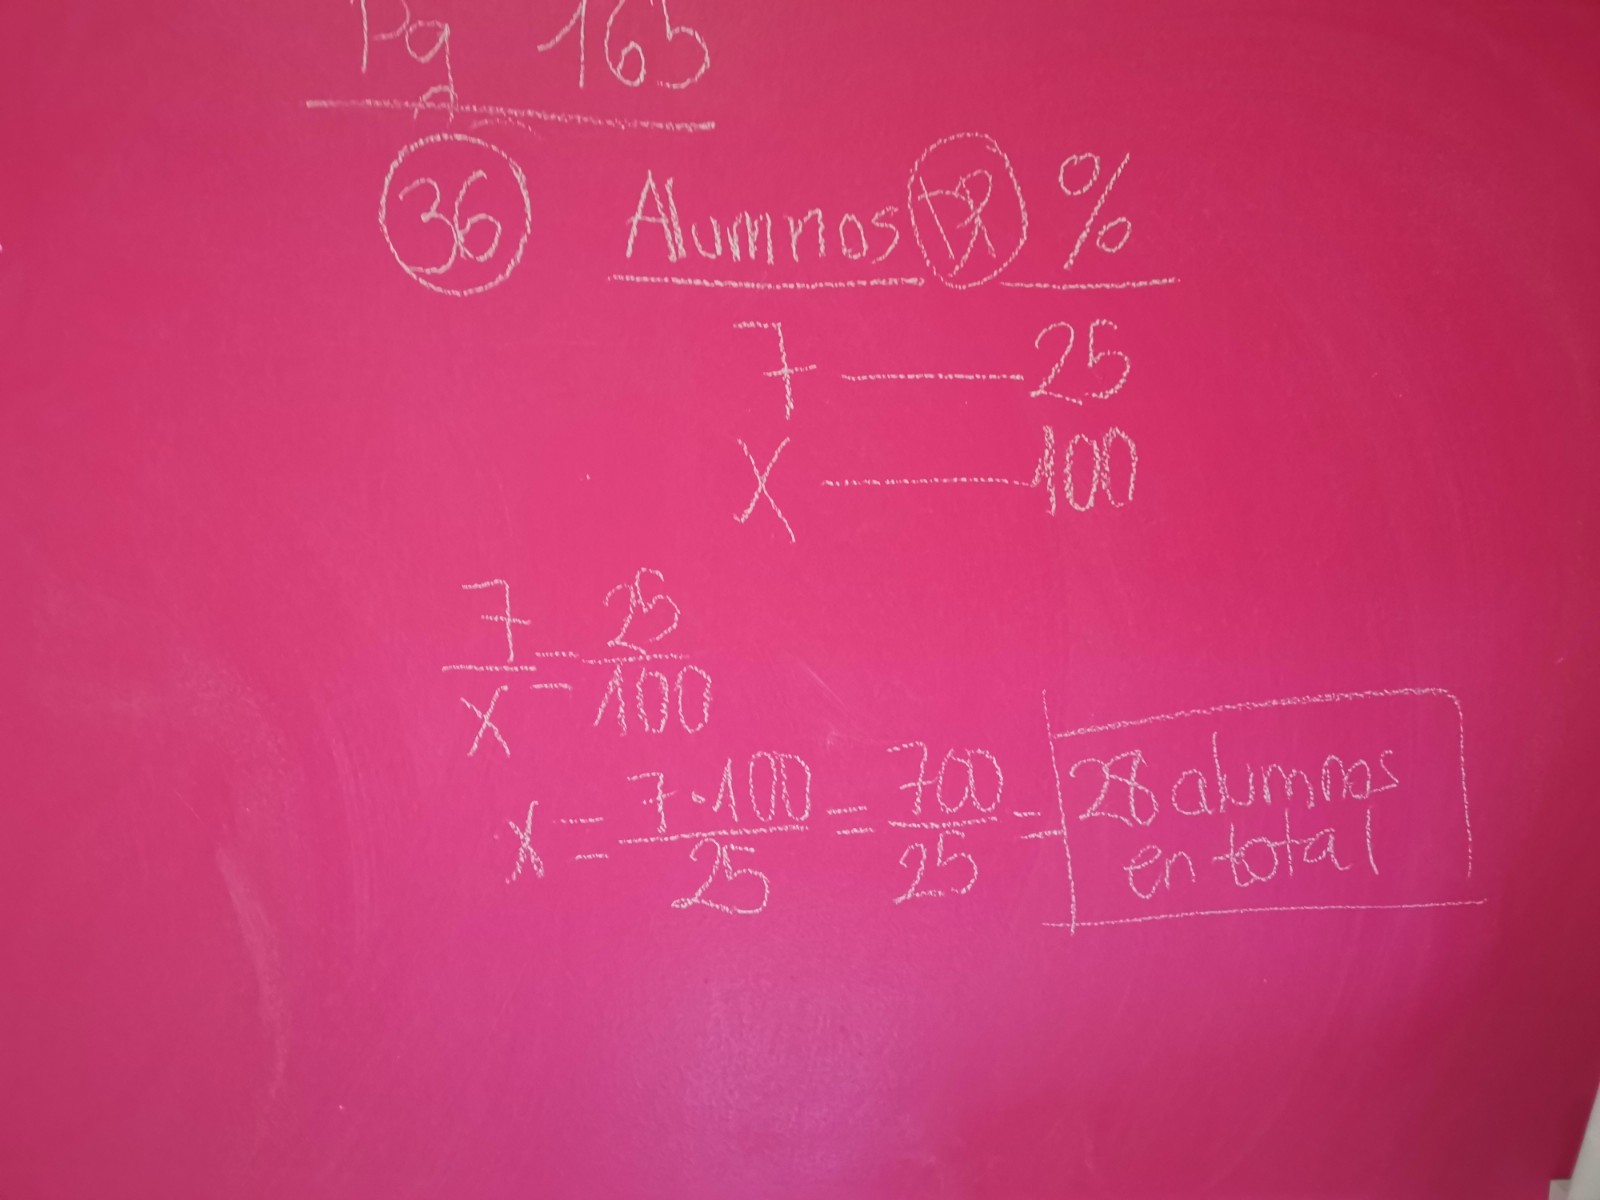 Pg 165
36 Alumnos %
7 — 25
x — 100
7/x = 25/100
x = 7·100/25 = 700/25 = 28 alumnos
en total